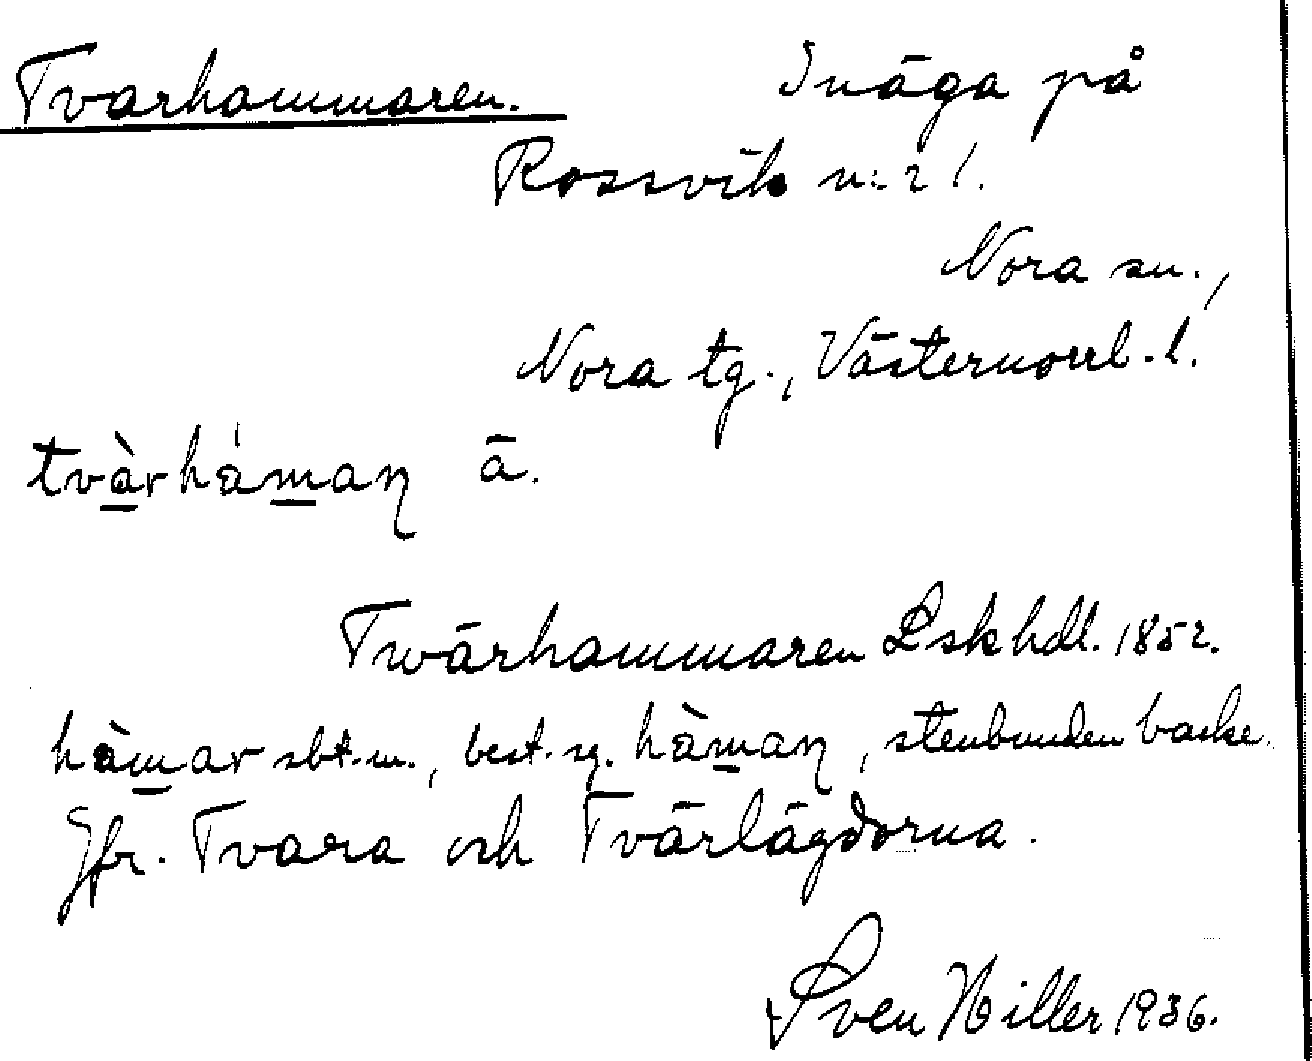 Tvarhammaren. Inäga på
Rossvik n:r 1.
Nora sn.,
Nora tg., Västernorrl. l.
tvàrhámaɳ ā.
Twärhammaren Lskhdl. 1852.
hàmar sbt. m., best. sg. hàmaɳ, stenbunden backe.
Jfr. Tvara och Tvärlägdorna.
Sven Hiller 1936.